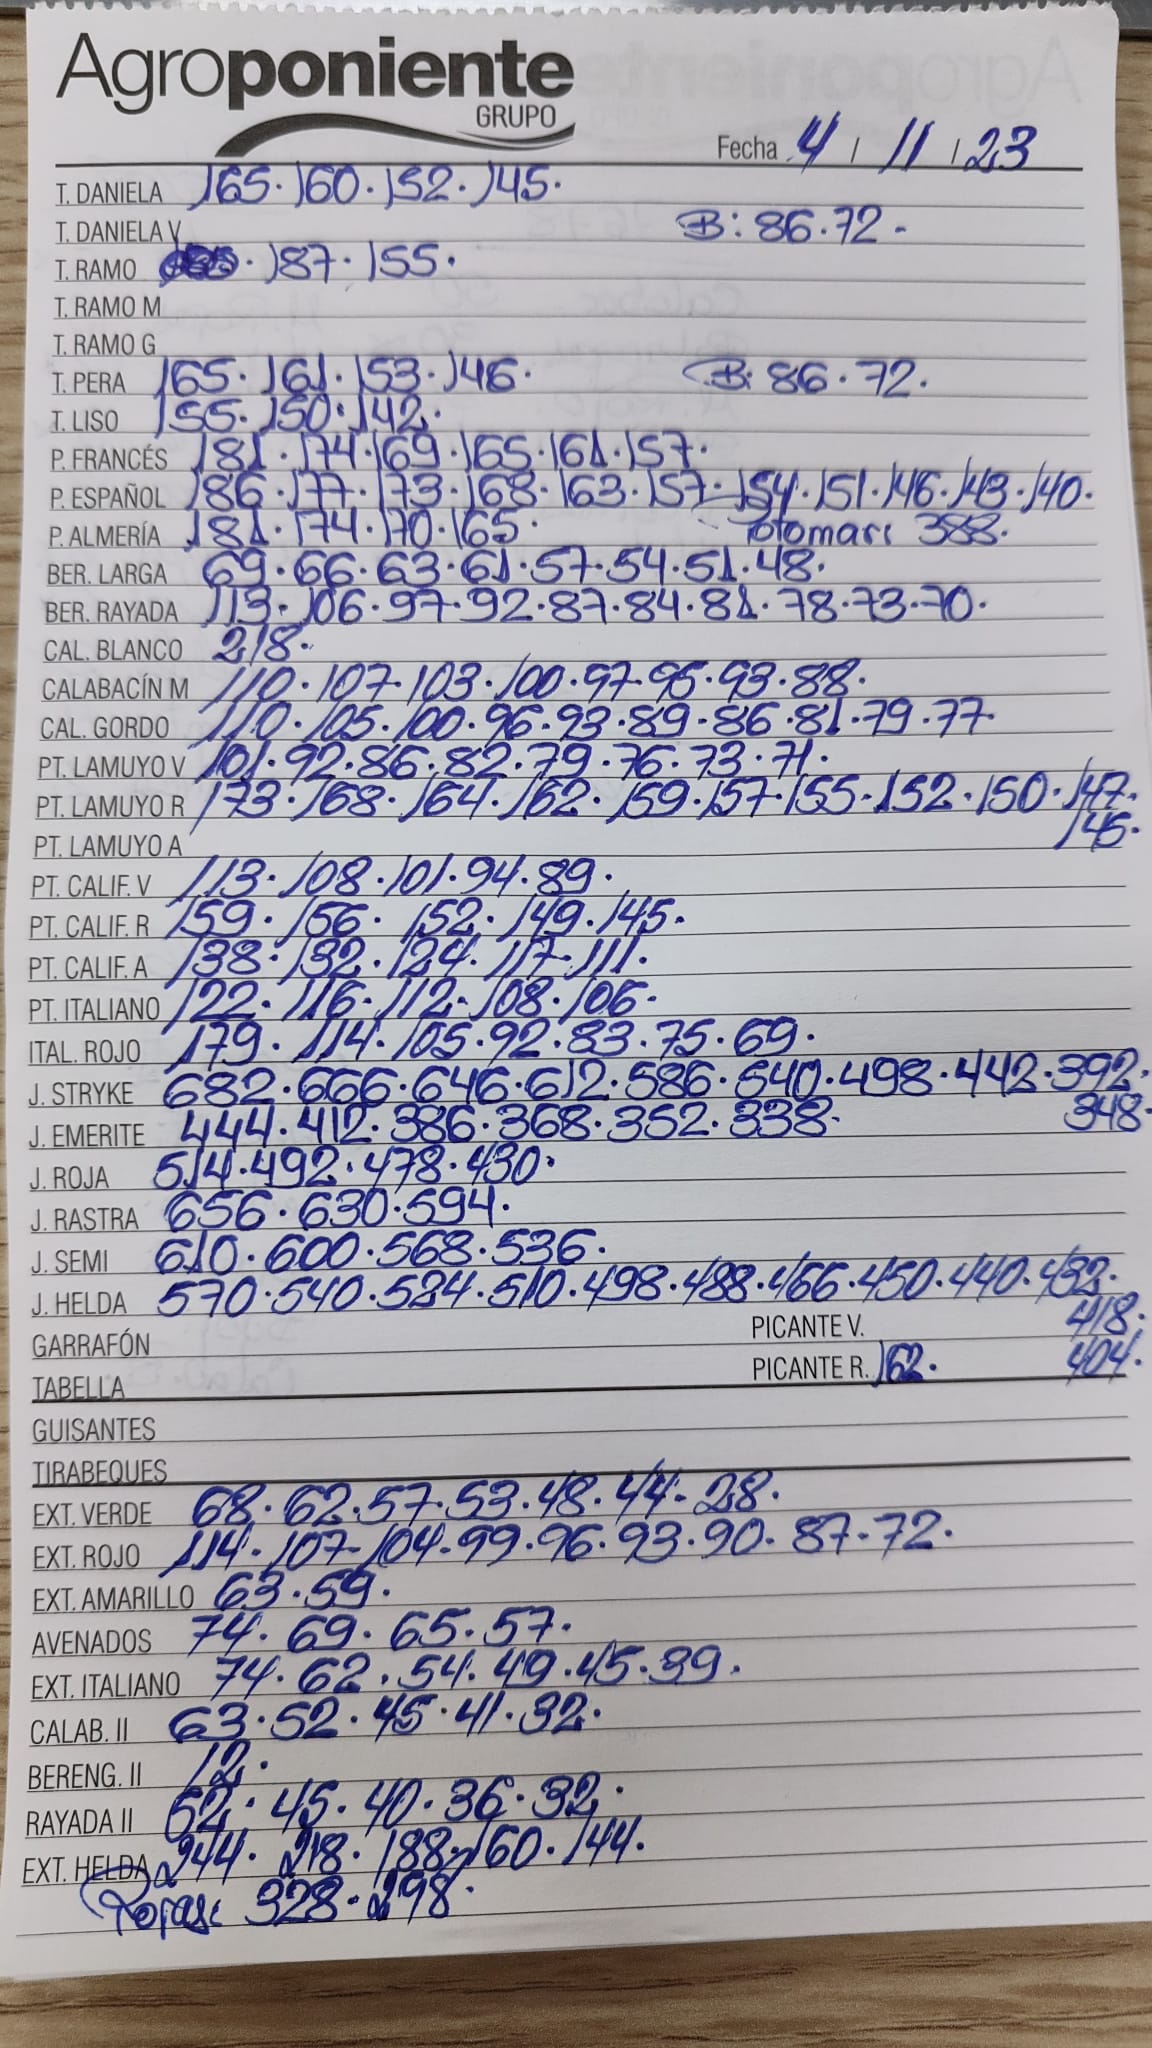 Agroponiente
GRUPO
Fecha 4 / 11 / 23
T. DANIELA 165. 160. 152. 145.
T. DANIELA V B: 86.72.
T. RAMO . 187. 155.
T. RAMO M
T. RAMO G
T. PERA 165. 161. 153. 146. B: 86.72.
T. LISO 155. 150. 142.
P. FRANCÉS 181. 174. 169. 165. 161. 157.
P. ESPAÑOL 186. 177. 173. 168. 163. 157. 154. 151. 146. 143. 140.
P. ALMERÍA 181. 174. 170. 165. 388.
BER. LARGA 69. 66. 63. 61. 57. 54. 51. 48.
BER. RAYADA 113. 106. 97. 92. 87. 84. 81. 78. 73. 70.
CAL. BLANCO 218.
CALABACÍN M 110. 107. 103. 100. 97. 95. 93. 88.
CAL. GORDO 110. 105. 100. 96. 93. 89. 86. 81. 79. 77.
PT. LAMUYO V 101. 92. 86. 82. 79. 76. 73. 71.
PT. LAMUYO R 173. 168. 164. 162. 159. 157. 155. 152. 150. 147.
PT. LAMUYO A 145.
PT. CALIF. V 113. 108. 101. 94. 89.
PT. CALIF. R 159. 156. 152. 149. 145.
PT. CALIF. A 138. 132. 124. 117. 111.
PT. ITALIANO 122. 116. 112. 108. 106.
ITAL. ROJO 179. 114. 105. 92. 83. 75. 69.
J. STRYKE 682. 666. 646. 612. 586. 540. 498. 442. 392.
J. EMERITE 444. 412. 386. 368. 352. 338. 348.
J. ROJA 514. 492. 478. 430.
J. RASTRA 656. 630. 594.
J. SEMI 610. 600. 568. 536.
J. HELDA 570. 540. 524. 510. 498. 488. 466. 450. 440. 432.
GARRAFÓN PICANTE V. 418.
TABELLA PICANTE R. 162. 404.
GUISANTES
TIRABEQUES
EXT. VERDE 68. 62. 57. 53. 48. 44. 28.
EXT. ROJO 114. 107. 104. 99. 96. 93. 90. 87. 72.
EXT. AMARILLO 63. 59.
AVENADOS 74. 69. 65. 57.
EXT. ITALIANO 74. 62. 54. 49. 45. 39.
CALAB. II 63. 52. 45. 41. 32.
BERENG. II 12.
RAYADA II 52. 45. 40. 36. 32.
EXT. HELDA 244. 218. 188. 160. 144.
Rojas: 328. 298.